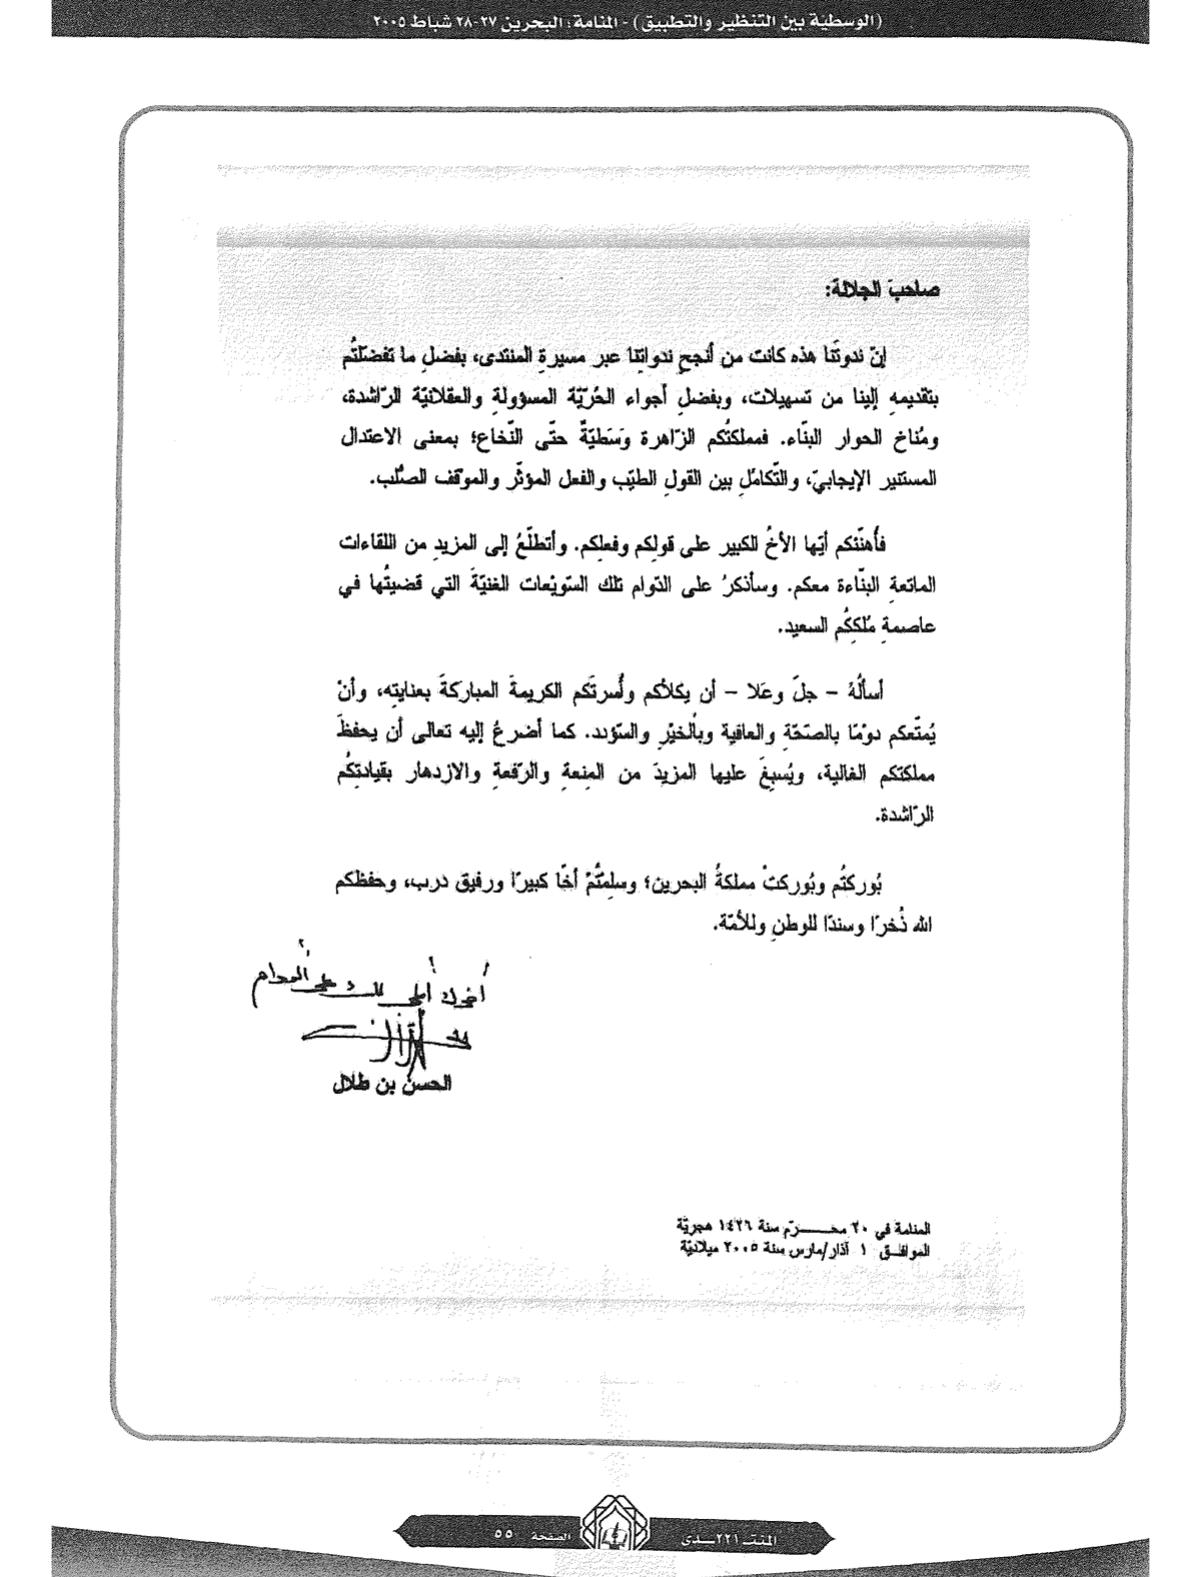 (الوسطية بين التنظير والتطبيق) - المنامة؛ البحرين ٢٧-٢٨ شباط ٢٠٠٥
صاحبَ الجلالة:
إنّ ندوتَنا هذه كانت من أنجحِ ندواتِنا عبر مسيرةِ المنتدى، بفضلِ ما تفضّلتُم
بتقديمهِ إلينا من تسهيلات، وبفضلِ أجواء الحُرّيّة المسؤولةِ والعقلانيّة الرّاشدة،
ومُناخ الحوار البنّاء. فمملكتُكم الزّاهرة وَسَطيّةٌ حتّى النّخاع؛ بمعنى الاعتدال
المستنير الإيجابيّ، والتّكامُلِ بين القولِ الطيّب والفعل المؤثّر والموقف الصّلب.
فأُهنّئكم أيّها الأخُ الكبير على قولِكم وفعلِكم. وأتطلّعُ إلى المزيدِ من اللقاءات
الماتعةِ البنّاءة معكم. وسأذكرُ على الدّوام تلك السّويْعات الغنيّةَ التي قضيتُها في
عاصمةِ مُلككُم السعيد.
أسألُهُ – جلّ وعَلا – أن يكلأكم وأسرتَكم الكريمةَ المباركةَ بعنايتِه، وأنْ
يُمتّعكم دوْمًا بالصّحّةِ والعافيةِ وبالخيْرِ والسّؤدد. كما أضرعُ إليه تعالى أن يحفظَ
مملكتكم الغالية، ويُسبِغَ عليها المزيدَ من المِنعةِ والرِّفعةِ والازدهار بقيادتِكُم
الرّاشدة.
بُوركتُم وبُوركتْ مملكةُ البحرين؛ وسلِمتُمْ أخًا كبيرًا ورفيق درب، وحفظكم
الله ذُخرًا وسندًا للوطنِ وللأمّة.
على الدوام
الحسن بن طلال
المنامة في ٢٠ محـــرّم سنة ١٤٢٦ هجريّة
الموافـق ١ آذار/مارس سنة ٢٠٠٥ ميلاديّة
المنتـ ٢٢١ ـدى
الصفحة ٥٥